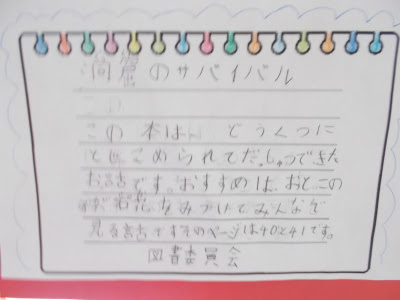 洞窟のサバイバル
この本は どうくつに
とじこめられてだっしゅつできた
お話です。おすすめは、おとこの
岩花をみつけてみんなで
見る話です。そのページは40と41です。
図書委員会